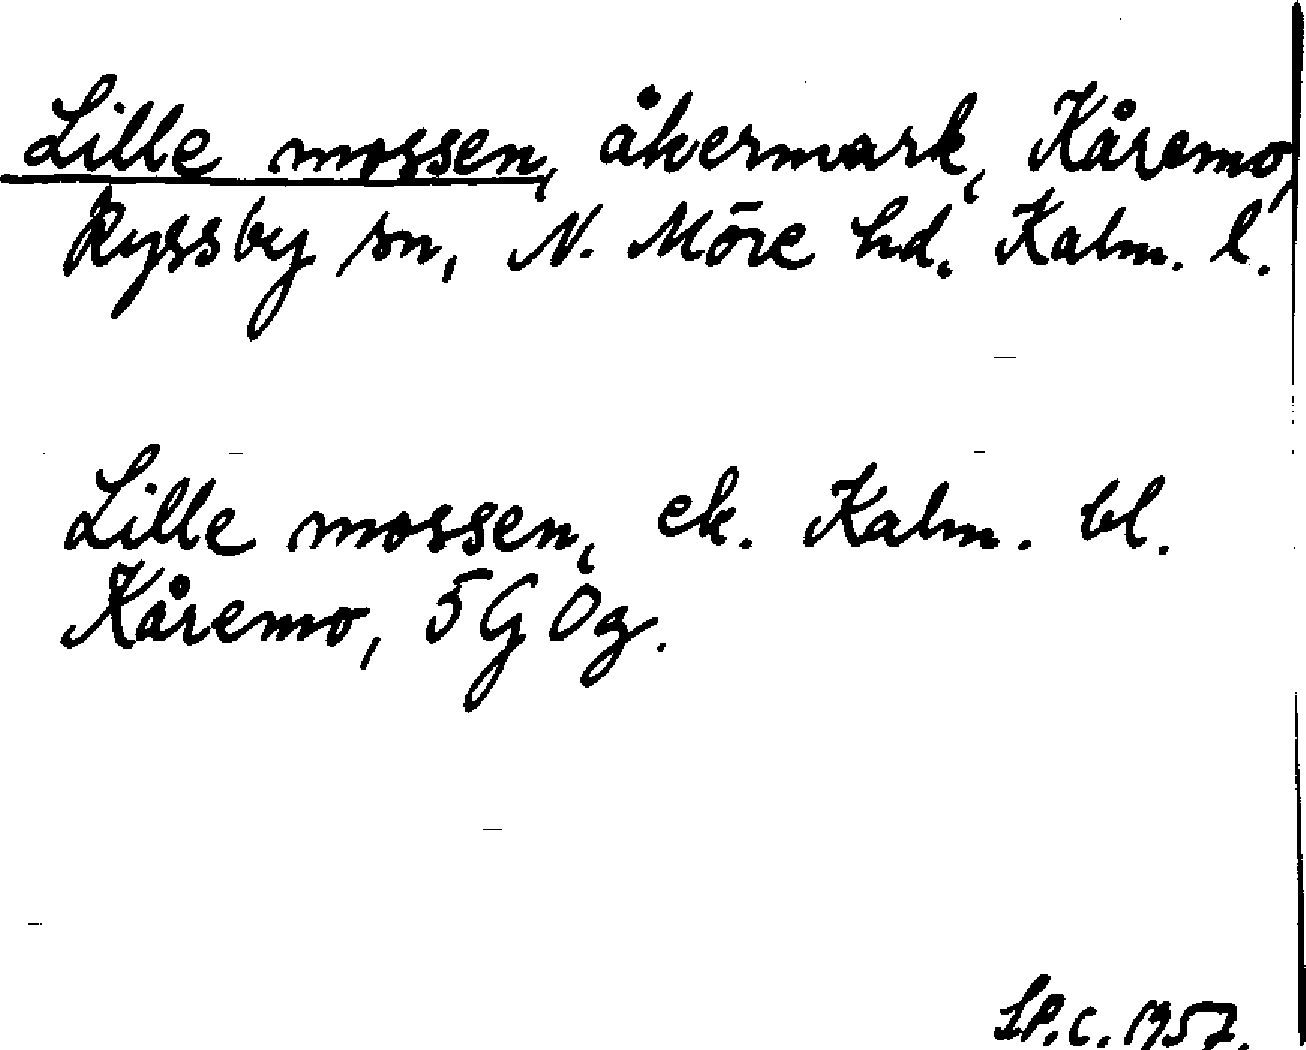 Lille mossen, åkermark, Kåremo,
Ryssby sn, N. Möre hd. Kalm. l.
Lille mossen, ek. Kalm. bl.
Kåremo, 5 G Ög.
LP.C. 1957.